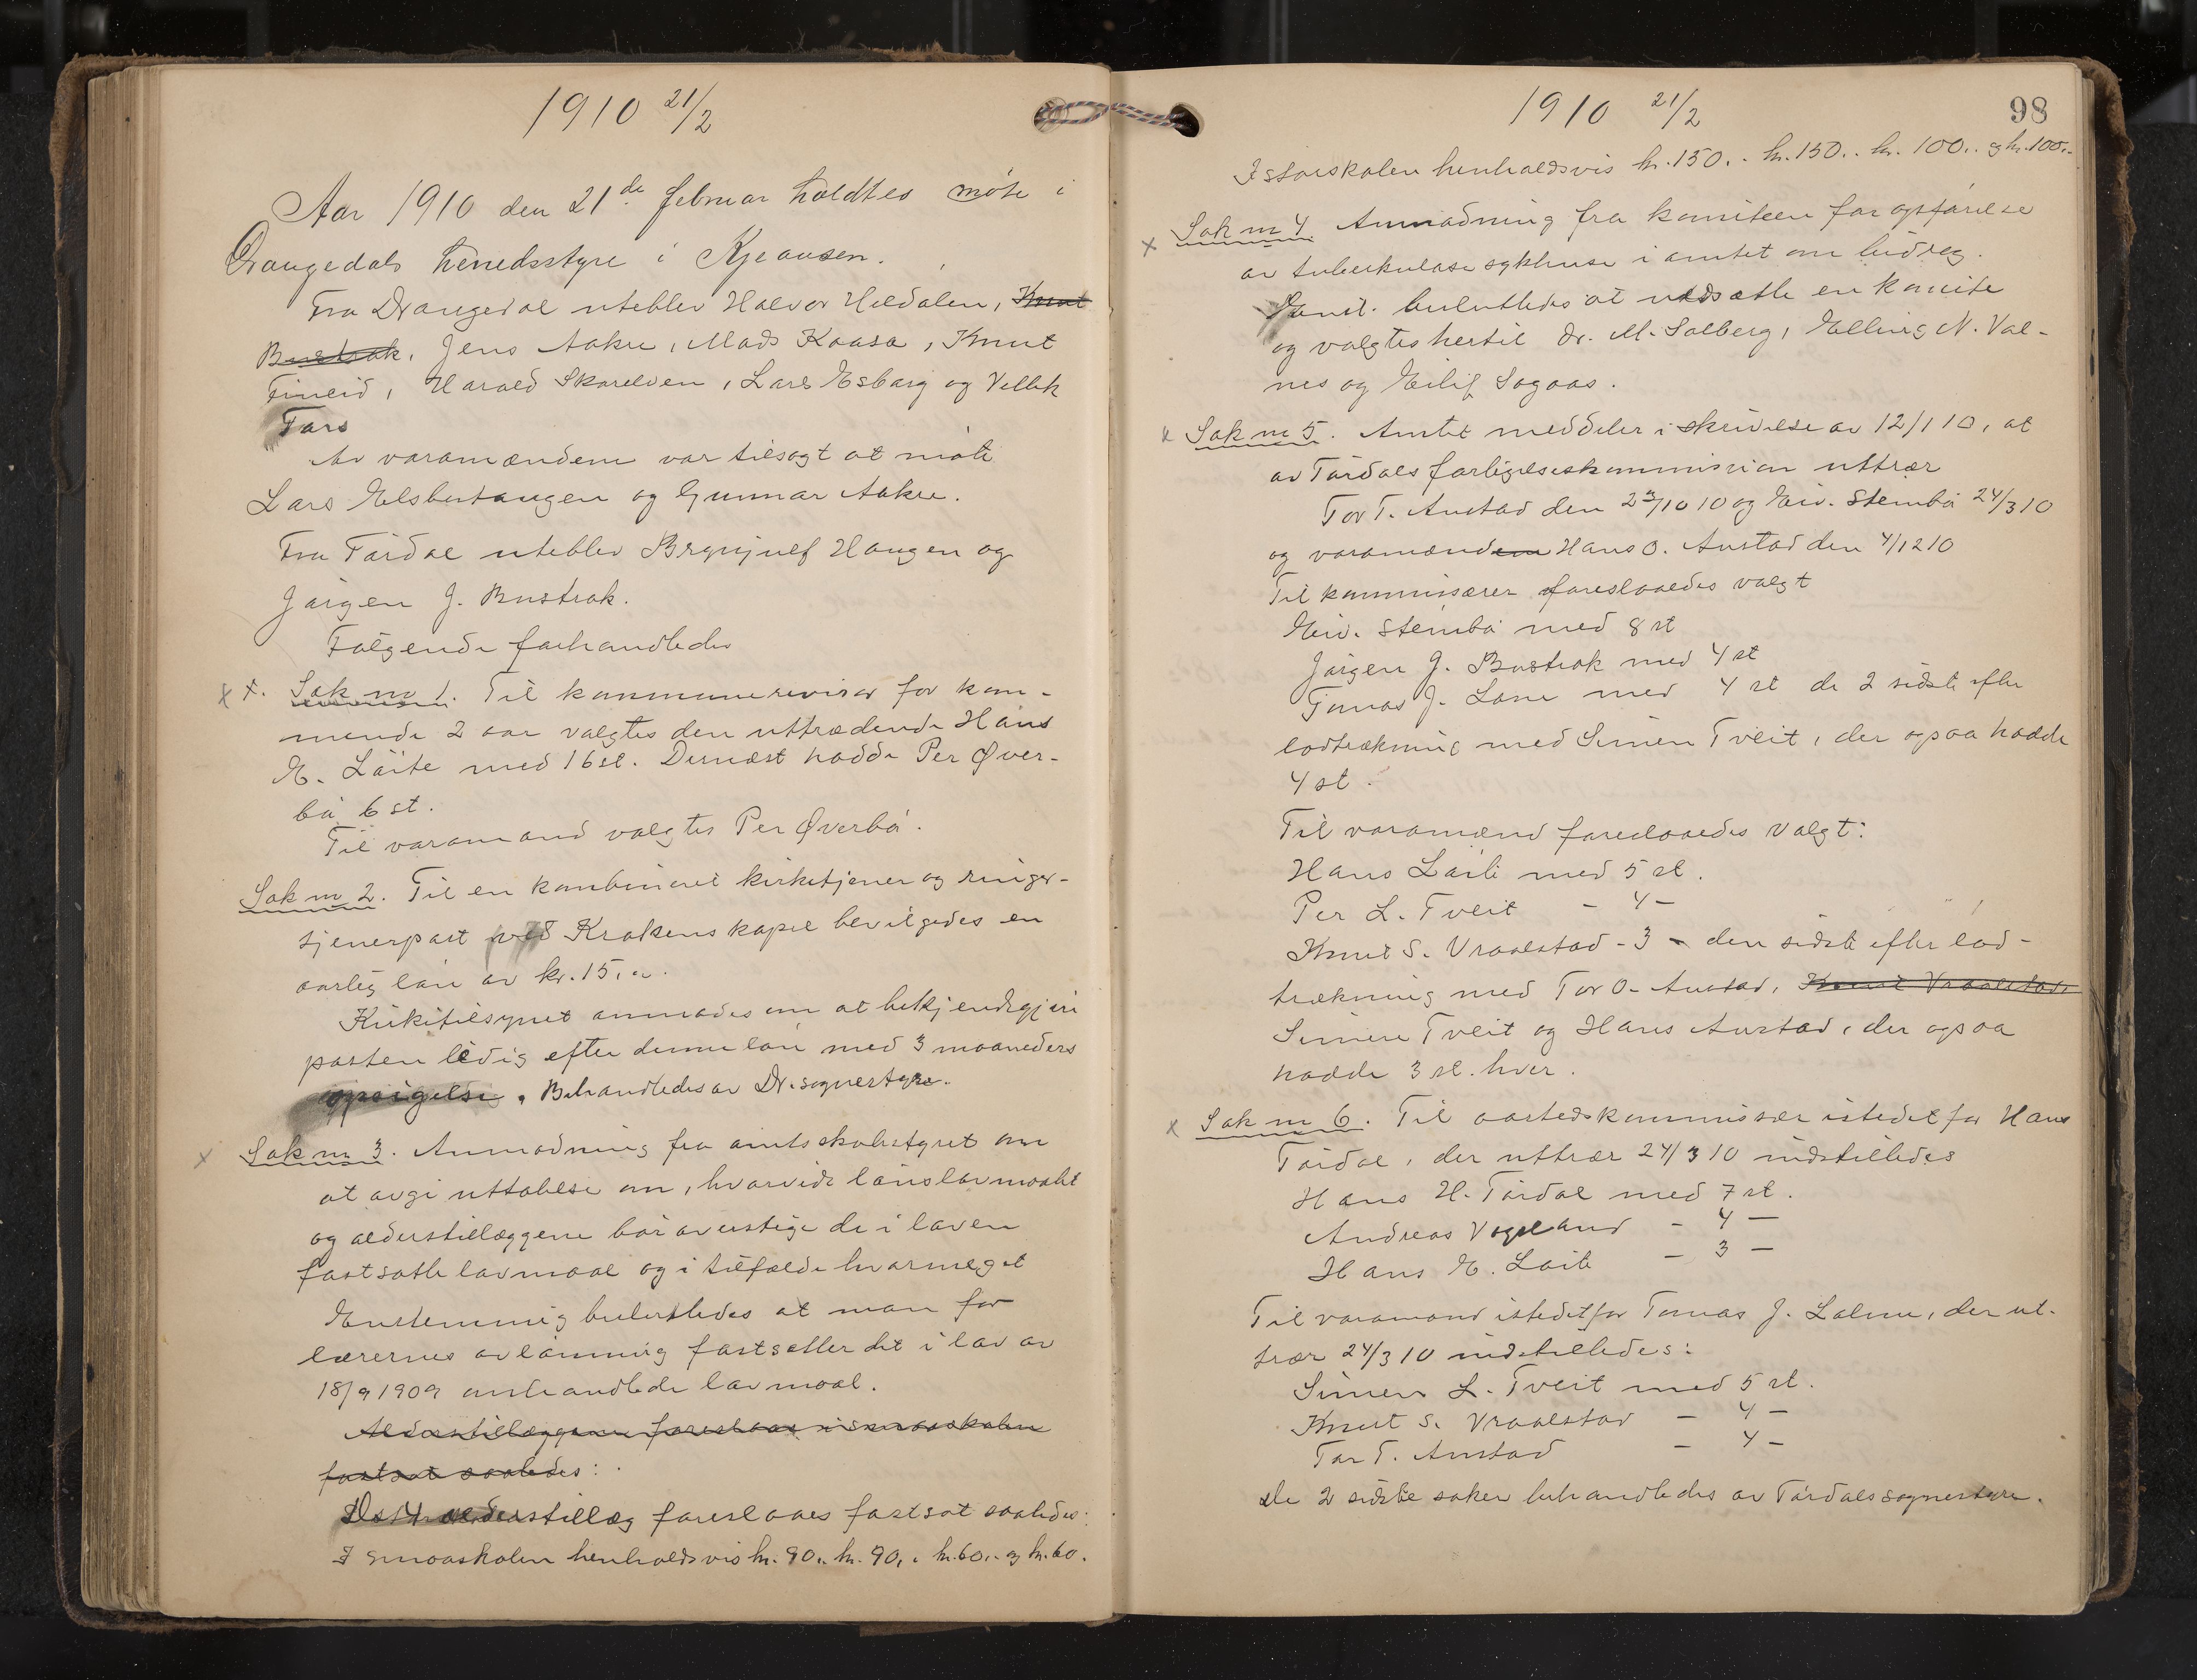 1910 21/2
Aar 1910 den 21de februar holdtes møte i
Drangedals herredsstyre i Kjeausen.
Fra Drangedal uteblev Halvor Heldalen, Knut
Bustrak, Jens Aakre, Mads Kaasa, Knut
Fineid, Harald Skarelven, Lars Esbarg og Vellek
Fars
Av varamændene var tilsagt at møte
Lars Elsbertangen og Gunnar Aakre.
Fra Tørdal uteblev Brynjulf Haugen og
Jørgen J. Bustrak.
Følgende forhandledes
x x. Sak nr 1. Til kommunerevisor for kom-
mende 2 aar valgtes den uttrædende Hans
E. Løite med 16 st. Dernæst hadde Per Øver-
bø 6 st.
Til varamand valgtes Per Øverbø.
Sak nr 2. Til en kombineret kirketjener og ringer-
tjenerpost ved Krokens kapel bevilgedes en
aarlig løn av kr. 15,00.
Kirketilsynet anmodes om at bekjendtgjøre
posten ledig efter denne løn med 3 maaneders
opsigelse. Behandledes av Dr. sognestyre.
x Sak nr 3. Anmodning fra amtsskolestyret om
at avgi uttalelse om, hvorvidt lønslavmaalet
og alderstillæggene bør overstige de i loven
fastsatte lavmaal og i tilfælde hvormeget
Enstemmig besluttedes at man for
lærernes avlønning fastsætter det i lov av
18/9 1909 omhandlede lavmaal.
Alderstillæggene foreslaaes i smaaskolen
fastsat saaledes:
De 4 alderstillæg foreslaaes fastsat saaledes:
I smaaskolen henholdsvis kr. 90,. kr. 90,. kr. 60,. og kr. 60.
1910 21/2
98
I storskolen henholdsvis kr. 150,. kr. 150,. kr. 100,. og kr. 100,-
x Sak nr 4. Anmodning fra komiteen for opførelse
av tuberkulosesykehuse i amtet om bidrag.
Enst. besluttedes at nedsætte en komite
og valgtes hertil dr. M. Solberg, Elling N. Val-
nes og Eilif Sogaas.
x Sak nr 5. Amtet meddeler i skrivelse av 12/1 10, at
av Tørdals forligelseskommission uttrær
Tor T. Austad den 23/10 10 og Eiv. Steinbø 24/3 10
og varamændene Hans O. Austad den 4/12 10
Til kommissærer foreslaaedes valgt
Eiv. Steinbø med 8 st
Jørgen J. Bustrak med 4 st
Tomas J. Lone med 4 st de 2 sidste efter
lodtrækning med Simen Tveit, der ogsaa hadde
4 st.
Til varamænd foreslaaedes valgt:
Hans Løite med 5 st.
Per L. Tveit - 4 -
Knut S. Vraalstad - 3 - den sidste efter lod-
trækning med Tor O. Austad, Knut Vraalstad
Simen Tveit og Hans Austad, der ogsaa
hadde 3 st. hver.
x Sak nr 6. Til aastedskommissær istedet for Hans
Tørdal, der uttrær 24/3 10 indstilledes
Hans H. Tørdal med 7 st.
Andreas Vogsland - 4 -
Hans E. Løite - 3 -
Til varamand istedetfor Tomas J. Lalum, der ut-
trær 24/3 10 indstilledes:
Simen L. Tveit med 5 st.
Knut S. Vraalstad - 4 -
Tor T. Austad - 4 -
De 2 sidste saker behandledes av Tørdals sognestyre.